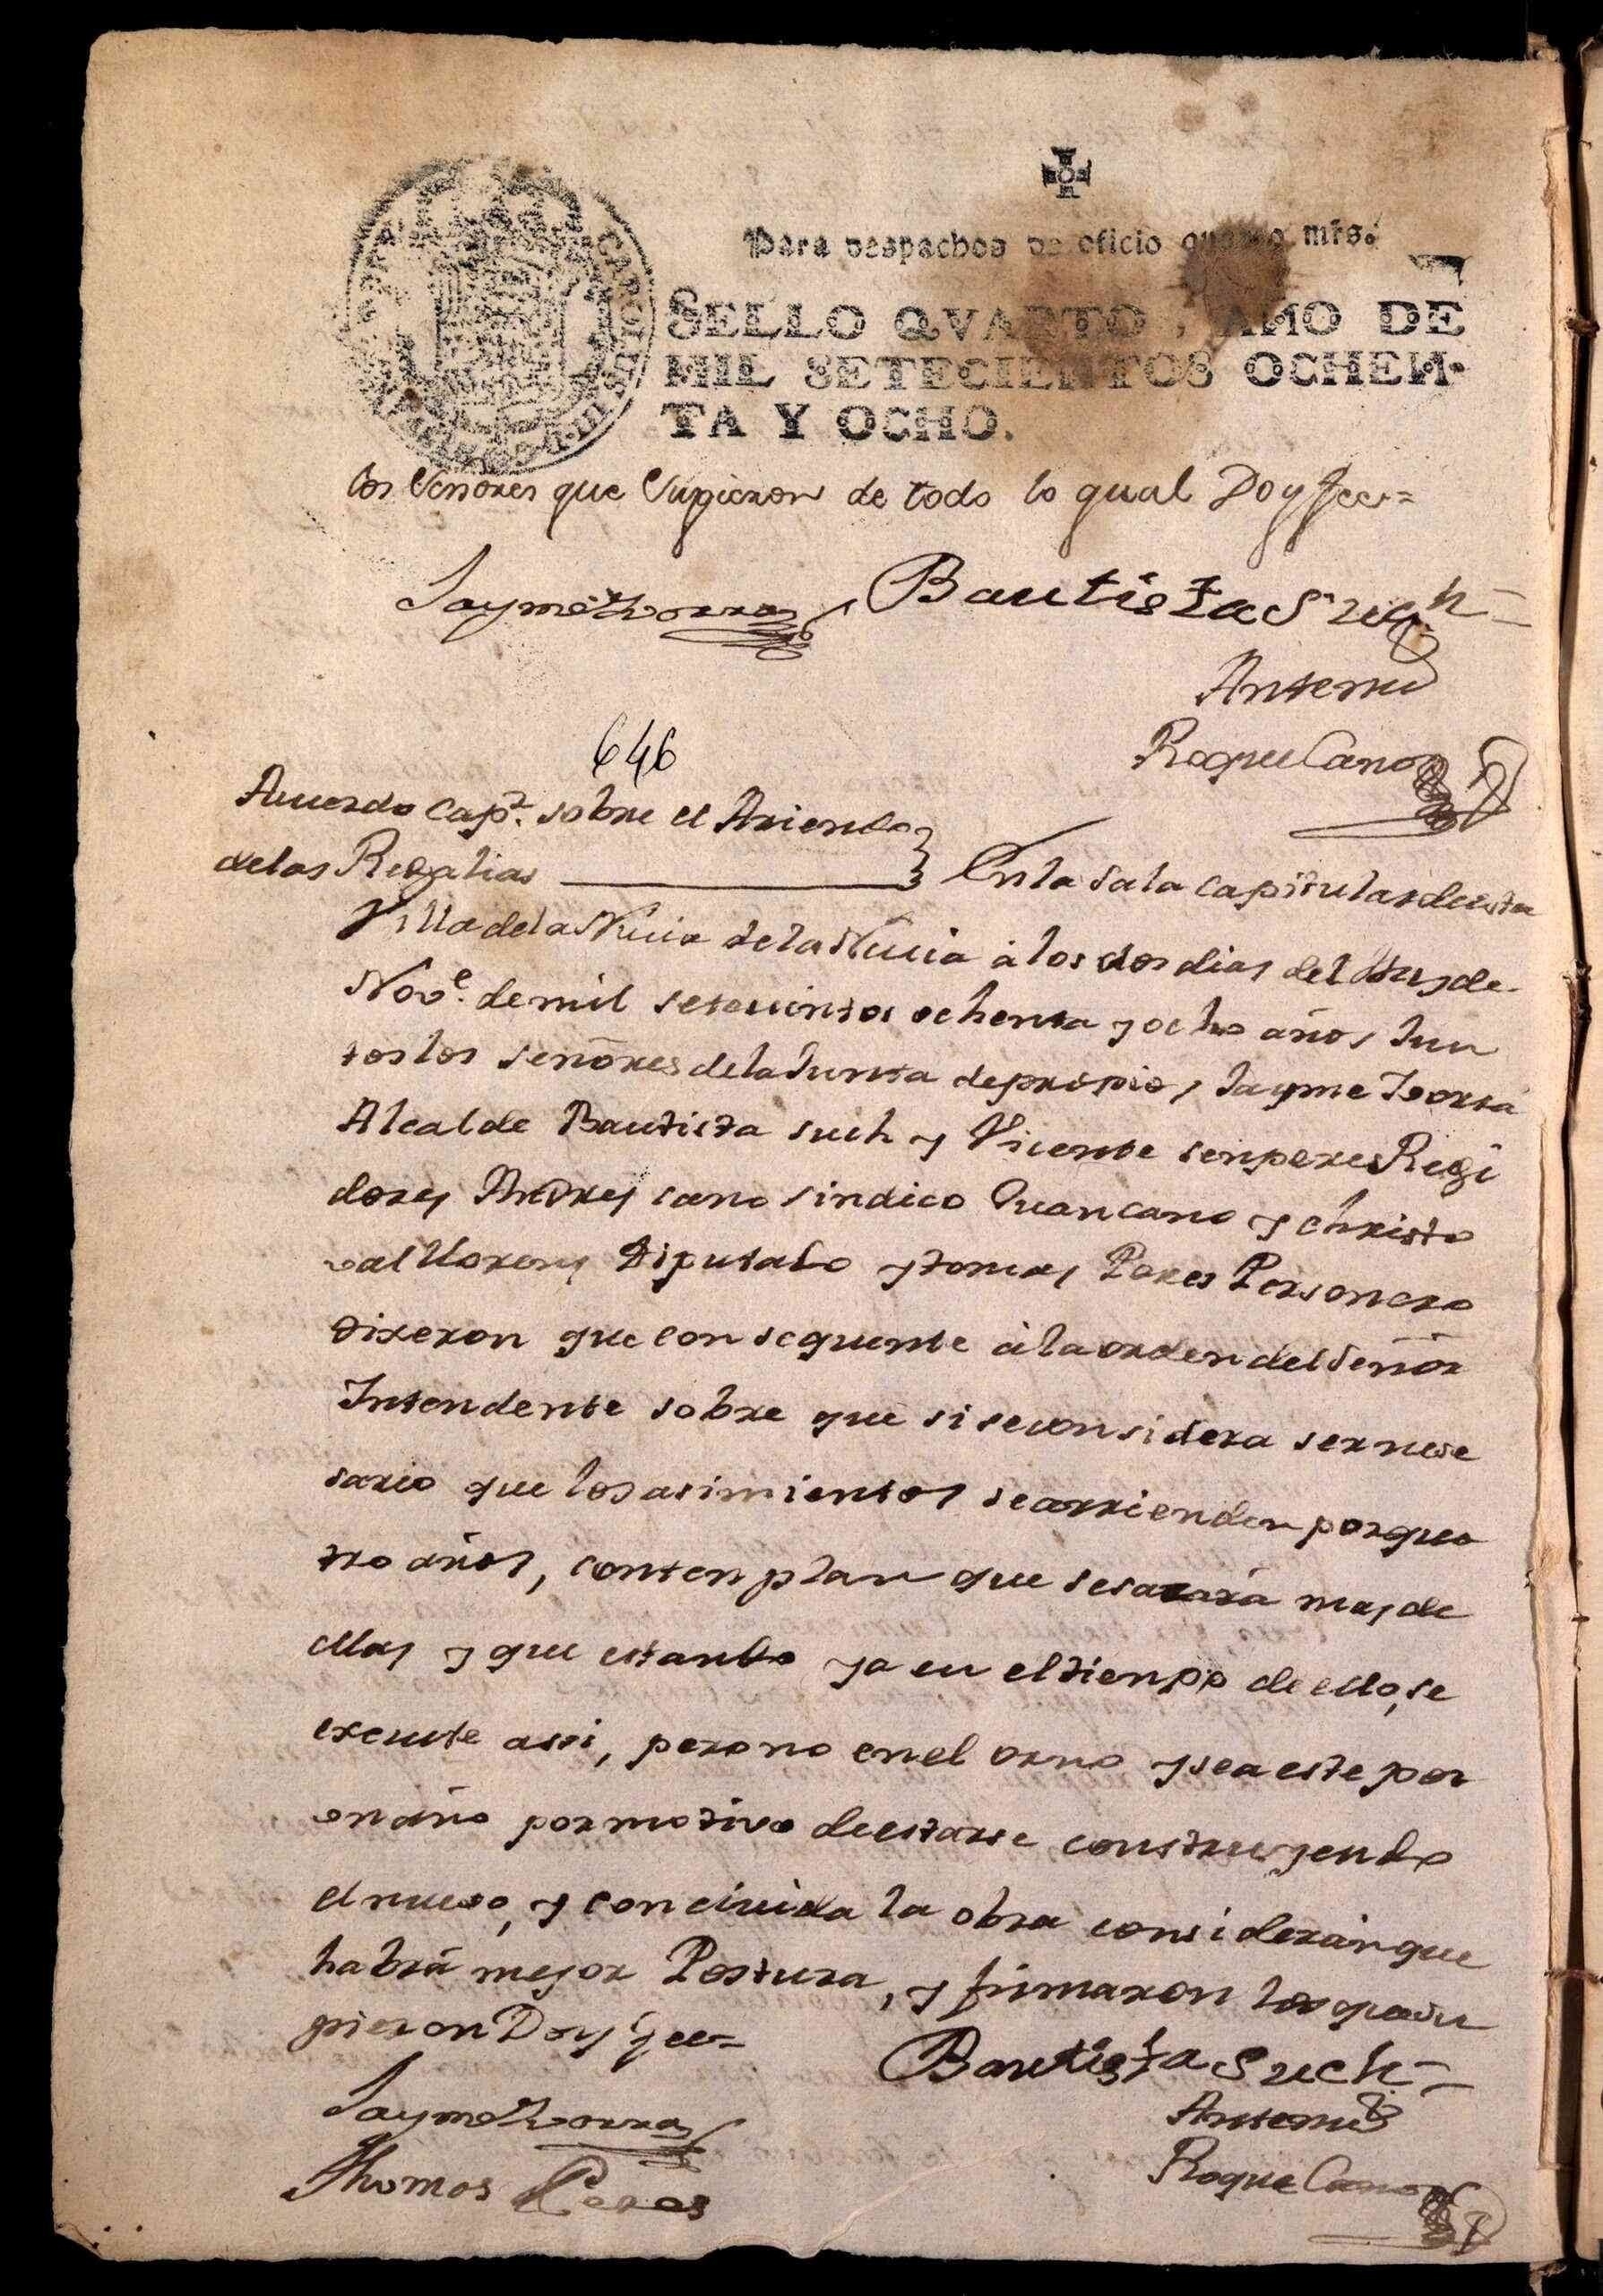 Para despachos de oficio quatro mrs.
SELLO QVARTO, AÑO DE
MIL SETECIENTOS OCHEN-
TA Y OCHO.
los Senores que Supieron de todo lo qual Doy fee=
Jayme Llorca Bautista Such=
Antemi
Roque Cano
646
Acuerdo Cap.r sobre el Ariendo
de las Regalias En la sala capitular de esta
Villa de la Nucia de la Nucia à los dos dias del Mes de
Nov.e de mil setecientos ochenta y ocho años Jun
tos los señores de la Junta de propios, Jayme Llorca
Alcalde Bautista such y Vicente senperes Regi
dores Andres cano sindico Juan cano y christo
val Llorens Diputado y tomas Peres Personero
Dixeron que consequente à la orden del Señor
Intendente sobre que si se considera ser nese
sario que los asimientos se arrienden por qua
tro años, contenplan que se sacara mas de
ellas y que estando ya en el tienpo de ello, se
execute assi, pero no en el orno y sea este por
un año por motivo de estarse construyendo
el nuevo, y concluida la obra considerán que
habrá mejor Postura, y firmaron los que su
pieron Doy fee=
Bautista Such=
Jayme Llorca Antemi
Thomas Peres Roque Cano